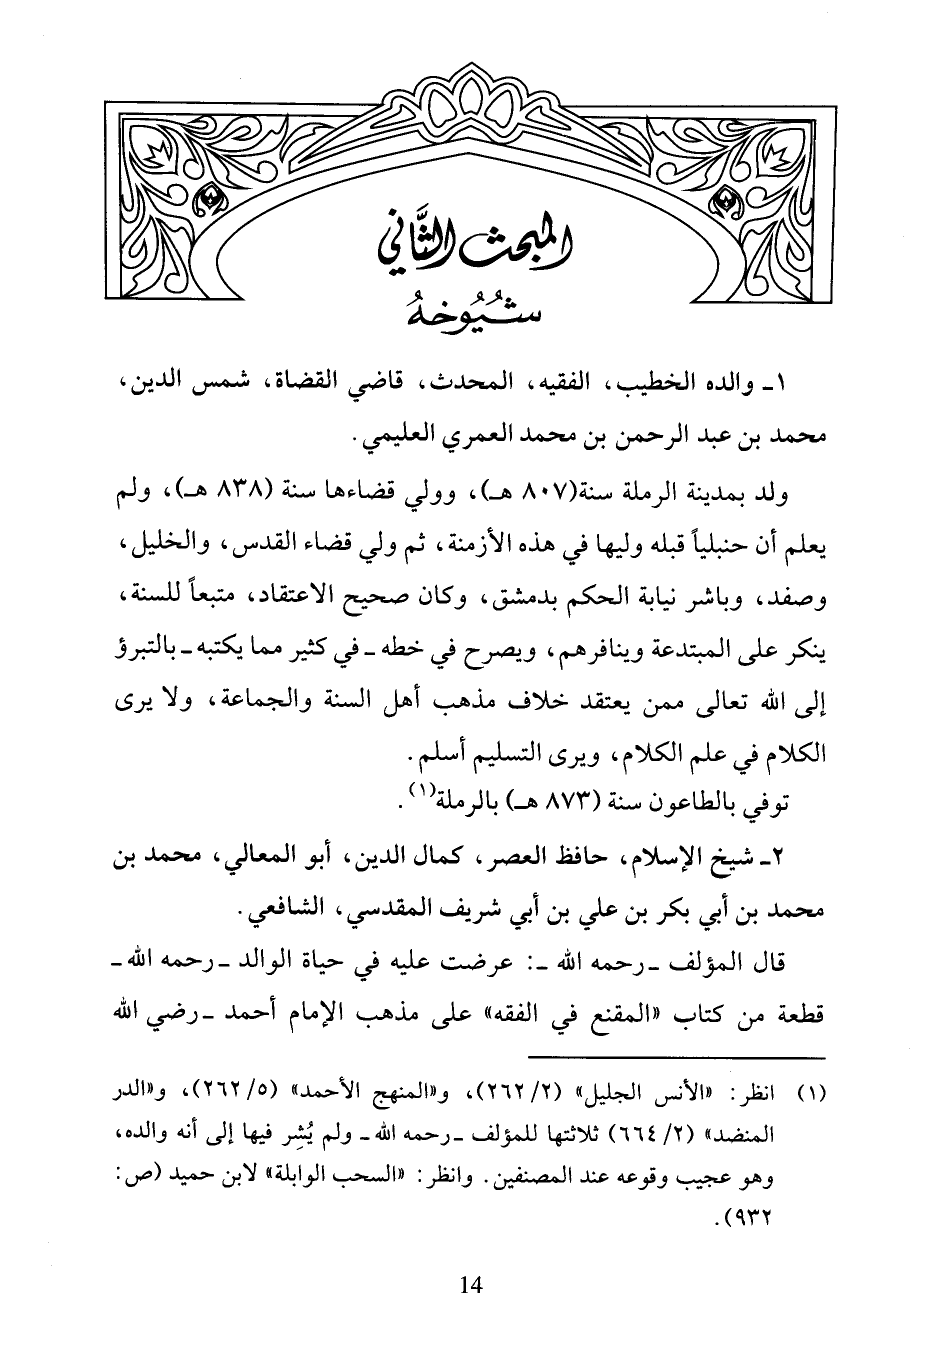 المبحث الثَّاني
شُيُوخهُ
١ـ والده الخطيب، الفقيه، المحدث، قاضي القضاة، شمس الدين،
محمد بن عبد الرحمن بن محمد العمري العليمي.
ولد بمدينة الرملة سنة(٨٠٧ هـ)، وولي قضاءها سنة (٨٣٨ هـ)، ولم
يعلم أن حنبلياً قبله وليها في هذه الأزمنة، ثم ولي قضاء القدس، والخليل،
وصفد، وباشر نيابة الحكم بدمشق، وكان صحيح الاعتقاد، متبعاً للسنة،
ينكر على المبتدعة وينافرهم، ويصرح في خطه ـ في كثير مما يكتبه ـ بالتبرؤ
إلى الله تعالى ممن يعتقد خلاف مذهب أهل السنة والجماعة، ولا يرى
الكلام في علم الكلام، ويرى التسليم أسلم.
توفي بالطاعون سنة (٨٧٣ هـ) بالرملة(١).
٢ـ شيخ الإسلام، حافظ العصر، كمال الدين، أبو المعالي، محمد بن
محمد بن أبي بكر بن علي بن أبي شريف المقدسي، الشافعي.
قال المؤلف ـ رحمه الله ـ: عرضت عليه في حياة الوالد ـ رحمه الله ـ
قطعة من كتاب «المقنع في الفقه» على مذهب الإمام أحمد ـ رضي الله
(١) انظر: «الأنس الجليل» (٢/ ٢٦٢)، و«المنهج الأحمد» (٥/ ٢٦٢)، و«الدر
المنضد» (٢/ ٦٦٤) ثلاثتها للمؤلف ـ رحمه الله ـ ولم يُشِر فيها إلى أنه والده،
وهو عجيب وقوعه عند المصنفين. وانظر: «السحب الوابلة» لابن حميد (ص:
٩٣٢).
14